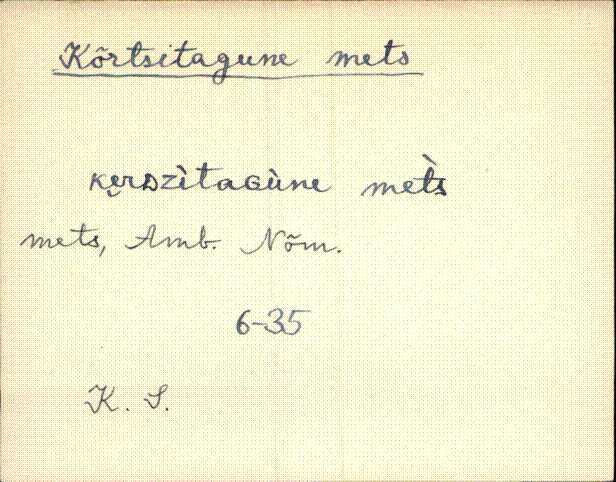 Kõrtsitagune mets
ᴋe̮rᴅzìtaɢùne met̀s
mets, Amb. Nõm.
6-35
K. S.